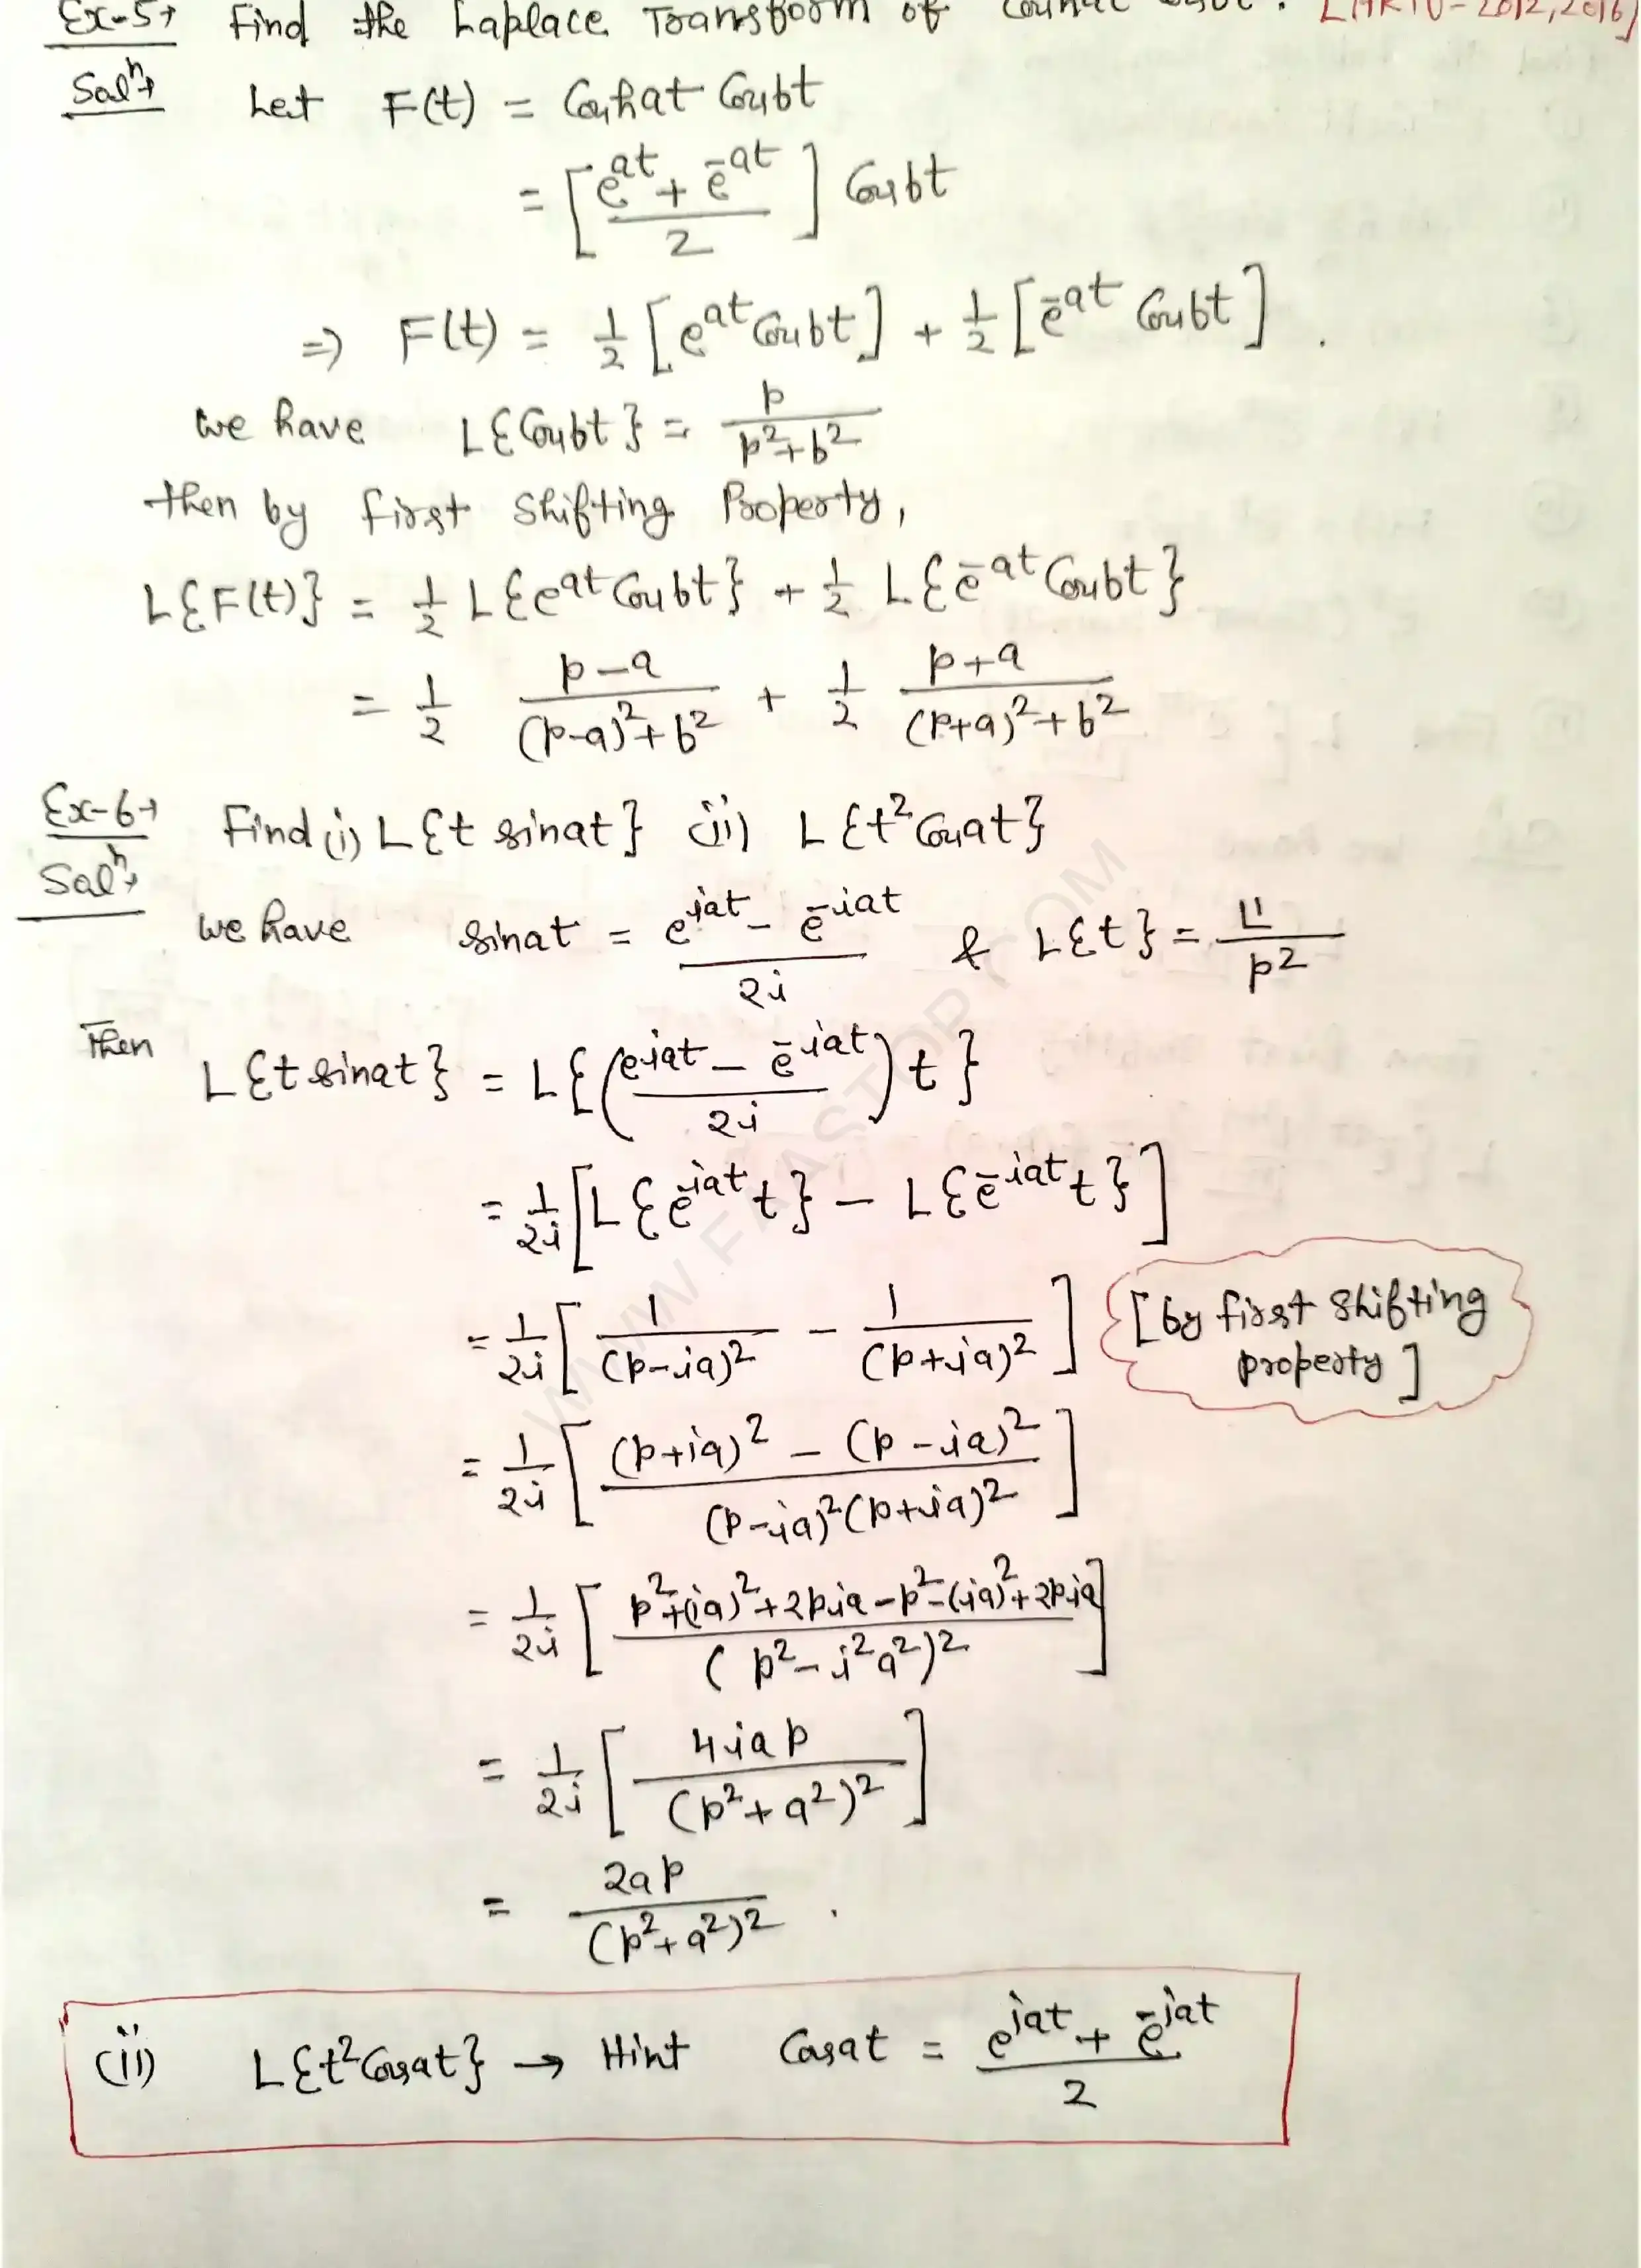 Ex-5→ Find the Laplace Transform of Coshat Cosbt. [AKTU-2012,2016]
Solⁿ→ Let F(t) = Coshat Cosbt
= [(e^{at} + e^{-at})/2] Cosbt
⇒ F(t) = 1/2 [e^{at} Cosbt] + 1/2 [e^{-at} Cosbt].
we have L{Cosbt} = p/(p²+b²)
then by first shifting Property,
L{F(t)} = 1/2 L{e^{at} Cosbt} + 1/2 L{e^{-at} Cosbt}
= 1/2 (p-a)/((p-a)²+b²) + 1/2 (p+a)/((p+a)²+b²)
Ex-6→ Find (i) L{t sinat} (ii) L{t² Cosat}
Solⁿ→
we have sinat = (e^{iat} - e^{-iat})/2i & L{t} = ∟1/p²
Then L{t sinat} = L{((e^{iat} - e^{-iat})/2i) t}
= 1/2i [L{e^{iat} t} - L{e^{-iat} t}]
= 1/2i [1/(p-ia)² - 1/(p+ia)²] [by first shifting
property]
= 1/2i [((p+ia)² - (p-ia)²)/((p-ia)²(p+ia)²)]
= 1/2i [(p²+(ia)²+2pia-p²-(ia)²+2pia)/(p²-i²a²)²]
= 1/2i [4iap/(p²+a²)²]
= 2ap/(p²+a²)².
(ii) L{t² Cosat} → Hint Cosat = (e^{iat} + e^{-iat})/2
WWW.FAASTOP7.COM